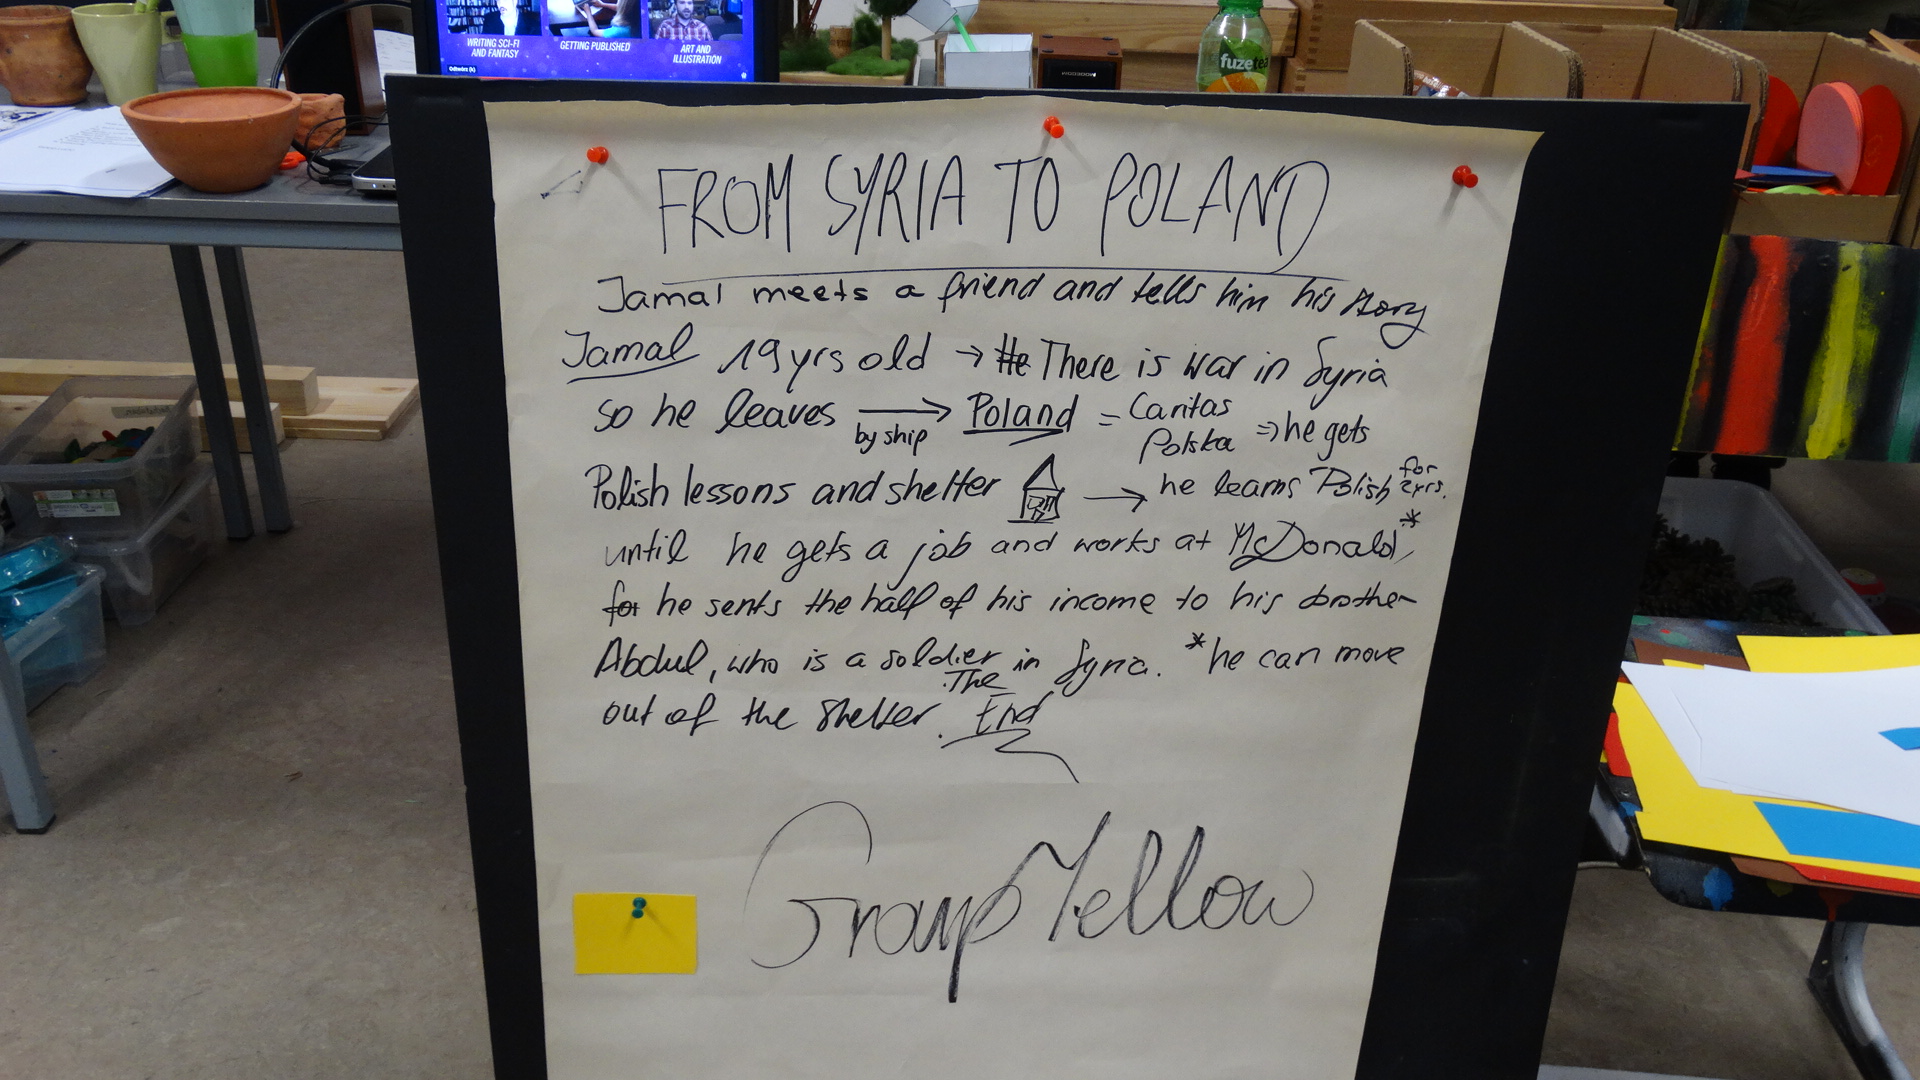 WRITING SCI-FI
AND FANTASY
GETTING PUBLISHED
ART AND
ILLUSTRATION
fuzetea
FROM SYRIA TO POLAND
Jamal meets a friend and tells him his story
Jamal 19 yrs old → He There is war in Syria
so he leaves → by ship Poland = Caritas Polska ⇒ he gets
Polish lessons and shelter → he learns Polish for 2 yrs.
until he gets a job and works at McDonald,*
for he sents the half of his income to his brother
Abdul, who is a soldier in Syria. *he can move
out of the shelter. The End
Group Yellow